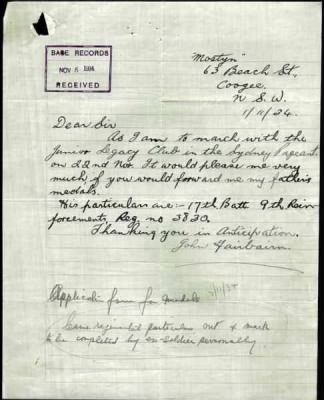 BASE RECORDS
NOV 5 1934
RECEIVED
"Mostyn"
63 Beach St.
Coogee.
N. S. W.
1/11/34.
Dear Sir
As I am to march with the
Junior Legacy Club in the Sydney Pageant.
on 22nd Nov. It would please me very
much, if you would forward me my father's
medals.
His particulars are:- 17th Batt 9th Rein-
forcements, Reg. no 3830.
Thanking you in Anticipation.
John Fairbairn.
Application form for medals
5/11/34
regimental particulars out & mark
to be completed by ex-Soldier personally